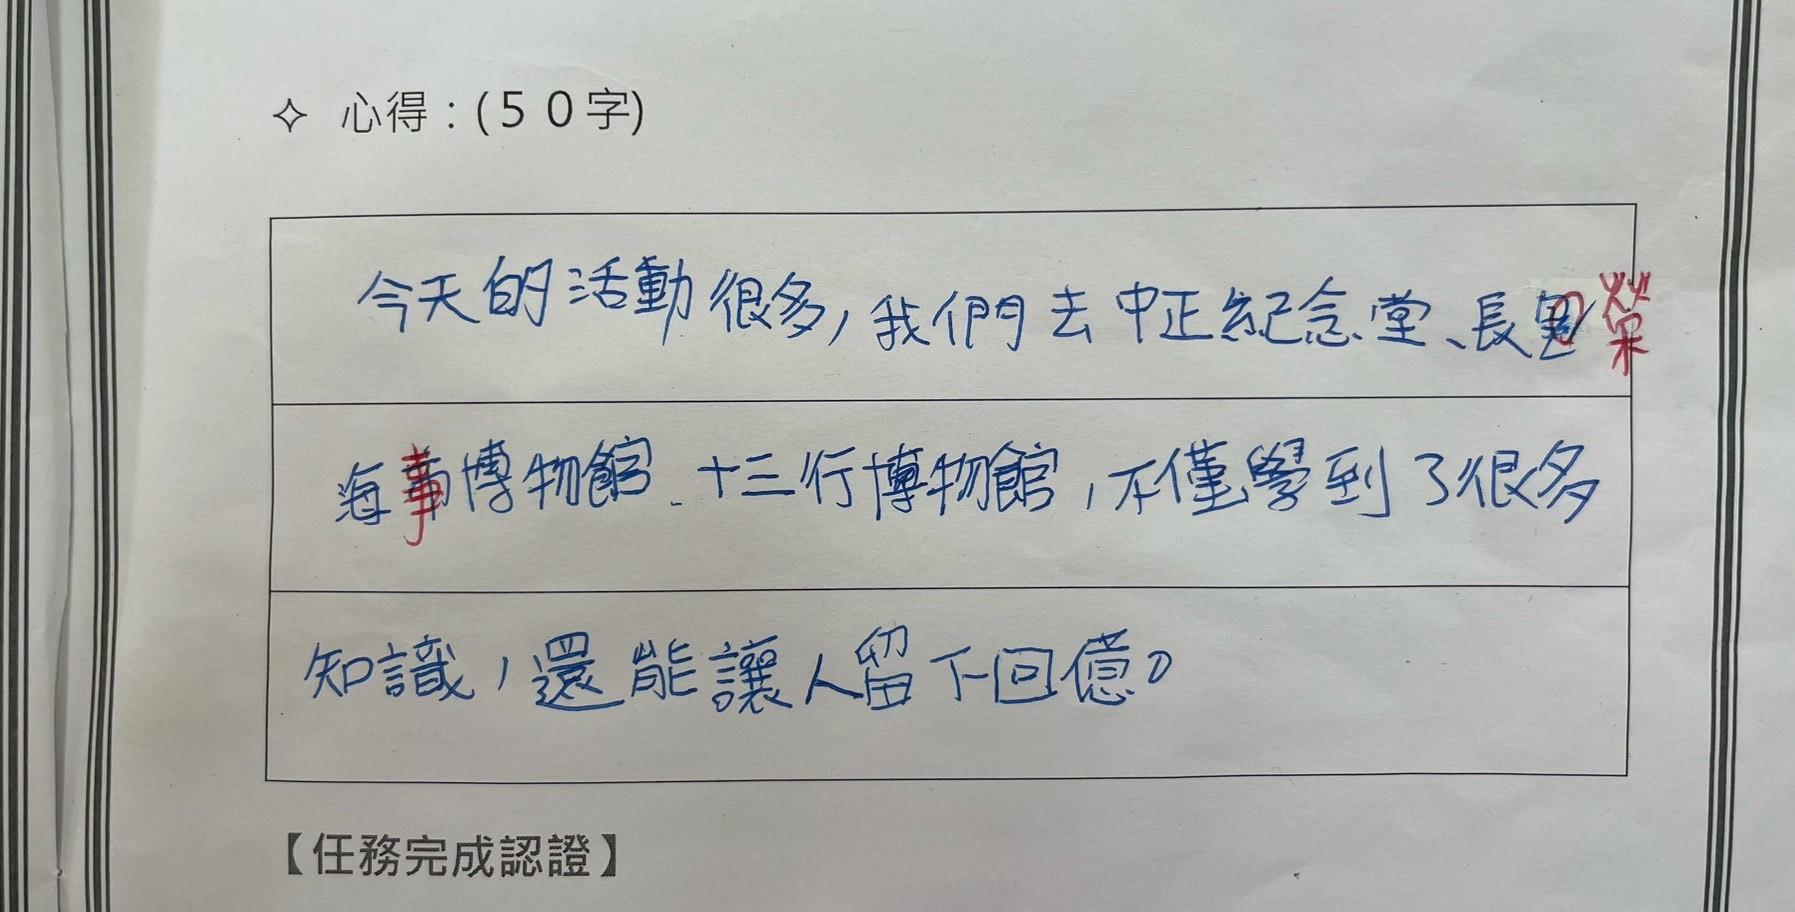 ✧ 心得：(５０字)
今天的活動很多，我們去中正紀念堂、長榮
海事博物館、十三行博物館，不僅學到了很多
知識，還能讓人留下回億。
【任務完成認證】